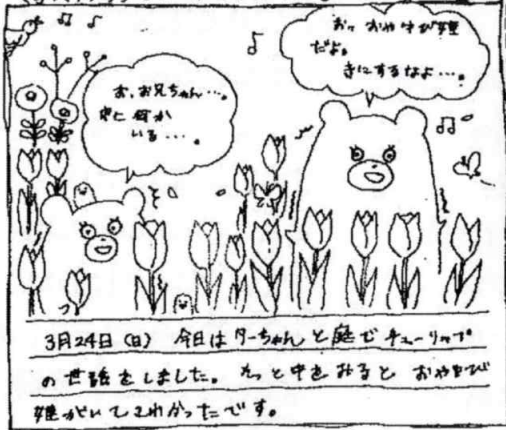 お、お兄ちゃん…。
中に何か
いる…。
おっ おやゆび姫
だよ。
きにするなよ…。
3月24日(日) 今日はターちゃんと庭でチューリップ
の世話をしました。そっと中をみると おやゆび
姫がいてこわかったです。